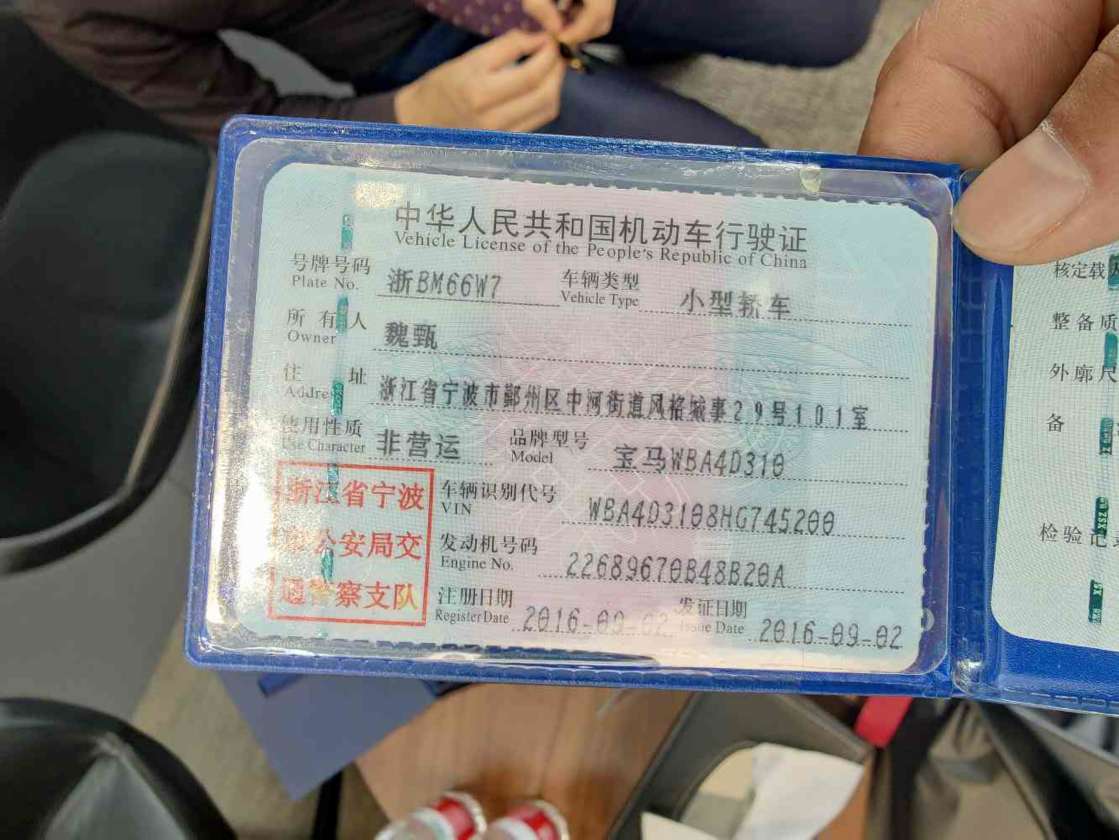 中华人民共和国机动车行驶证
Vehicle License of the People's Republic of China
号牌号码 浙BM66W7 车辆类型 小型轿车
Plate No. Vehicle Type
所有人 魏甄
Owner
住址 浙江省宁波市鄞州区中河街道风格城事29号101室
Address
使用性质 非营运 品牌型号 宝马WBA4D310
Use Character Model
浙江省宁波
市公安局交
通警察支队
车辆识别代号 WBA4D3108HG745200
VIN
发动机号码 22689670B48B20A
Engine No.
注册日期 2016-09-02 发证日期 2016-09-02
Register Date Issue Date
核定载
整备质
外廓尺
备
检验记